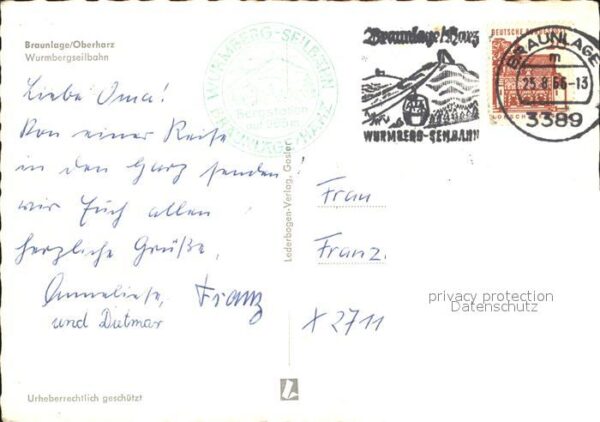 Braunlage/Oberharz
Wurmbergseilbahn
Liebe Oma!
Von einer Reise
in den Harz senden
wir Euch allen
herzliche Grüße,
Anneliese, Franz
und Dietmar
Urheberrechtlich geschützt
WURMBERG-SEILBAHN
Bergstation
BRAUNLAGE/HARZ
Lederbogen-Verlag, Goslar
Braunlage/Harz
WURMBERG-SEILBAHN
DEUTSCHE BUNDESPOST
LORSCH
BRAUNLAGE
m
25.8.66-13
3389
Frau
Franz.
privacy protection
Datenschutz
X 2711